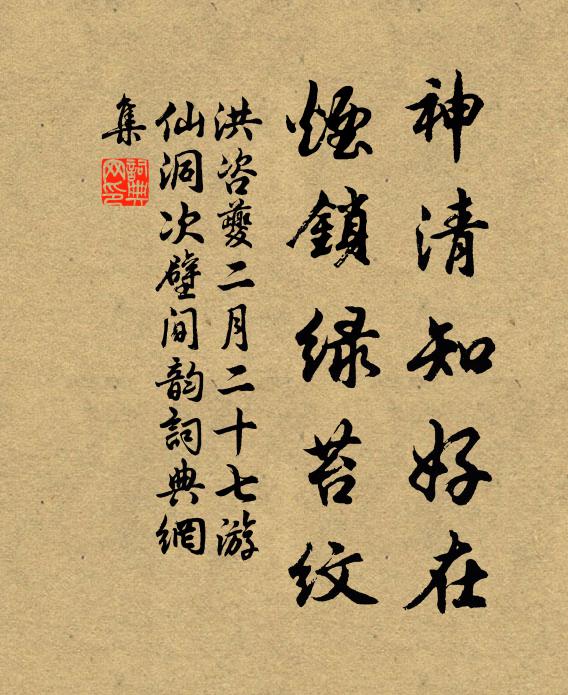 神清知好在
煙鎖綠苔紋
洪咨夔二月二十七游
仙洞次壁间韵詞典網
集
詞典
网印